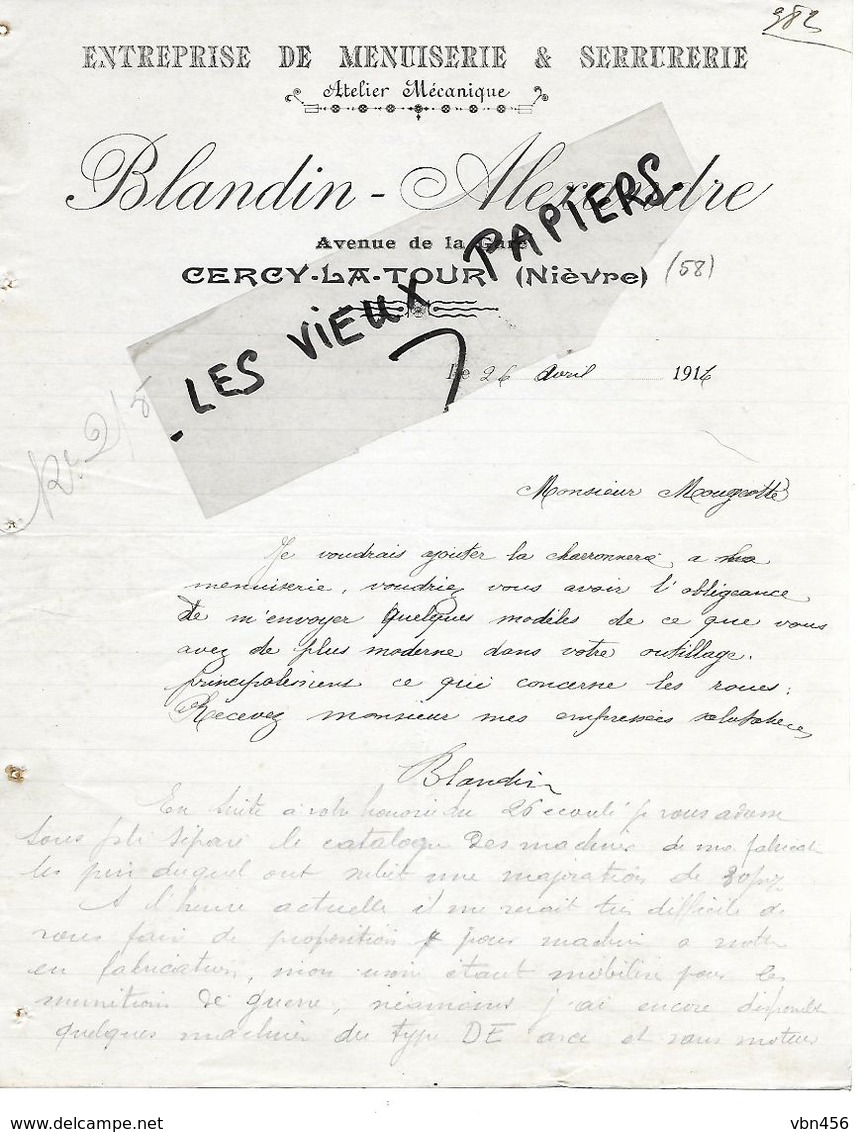 982
ENTREPRISE DE MENUISERIE & SERRURERIE
Atelier Mécanique
Blandin - Alexandre
Avenue de la Gare
CERCY-LA-TOUR (Nièvre) (58)
. LES VIEUX PAPIERS.
Le 26 Avril 1916
R. 2/5
Monsieur Mougeotte
Je voudrais ajouter la charronnerie a ma
menuiserie, voudriez vous avoir l'obligeance
de m'envoyer quelques modèles de ce que vous
avez de plus moderne dans votre outillage.
principalement ce qui concerne les roues:
Recevez monsieur mes empressées salutations
Blandin
En suite à votre honorée du 26 écoulé je vous adresse
sous pli séparé le catalogue des machines de ma fabricat
les prix duquel ont subit une majoration de 30
A l'heure actuelle il me serait très difficile de
vous faire de proposition pour machine a mettre
en fabrication, mon usine étant mobilisée pour les
munitions de guerre, néanmoins j'ai encore disponible
quelques machines du type DE avec et sans moteur
vbn456